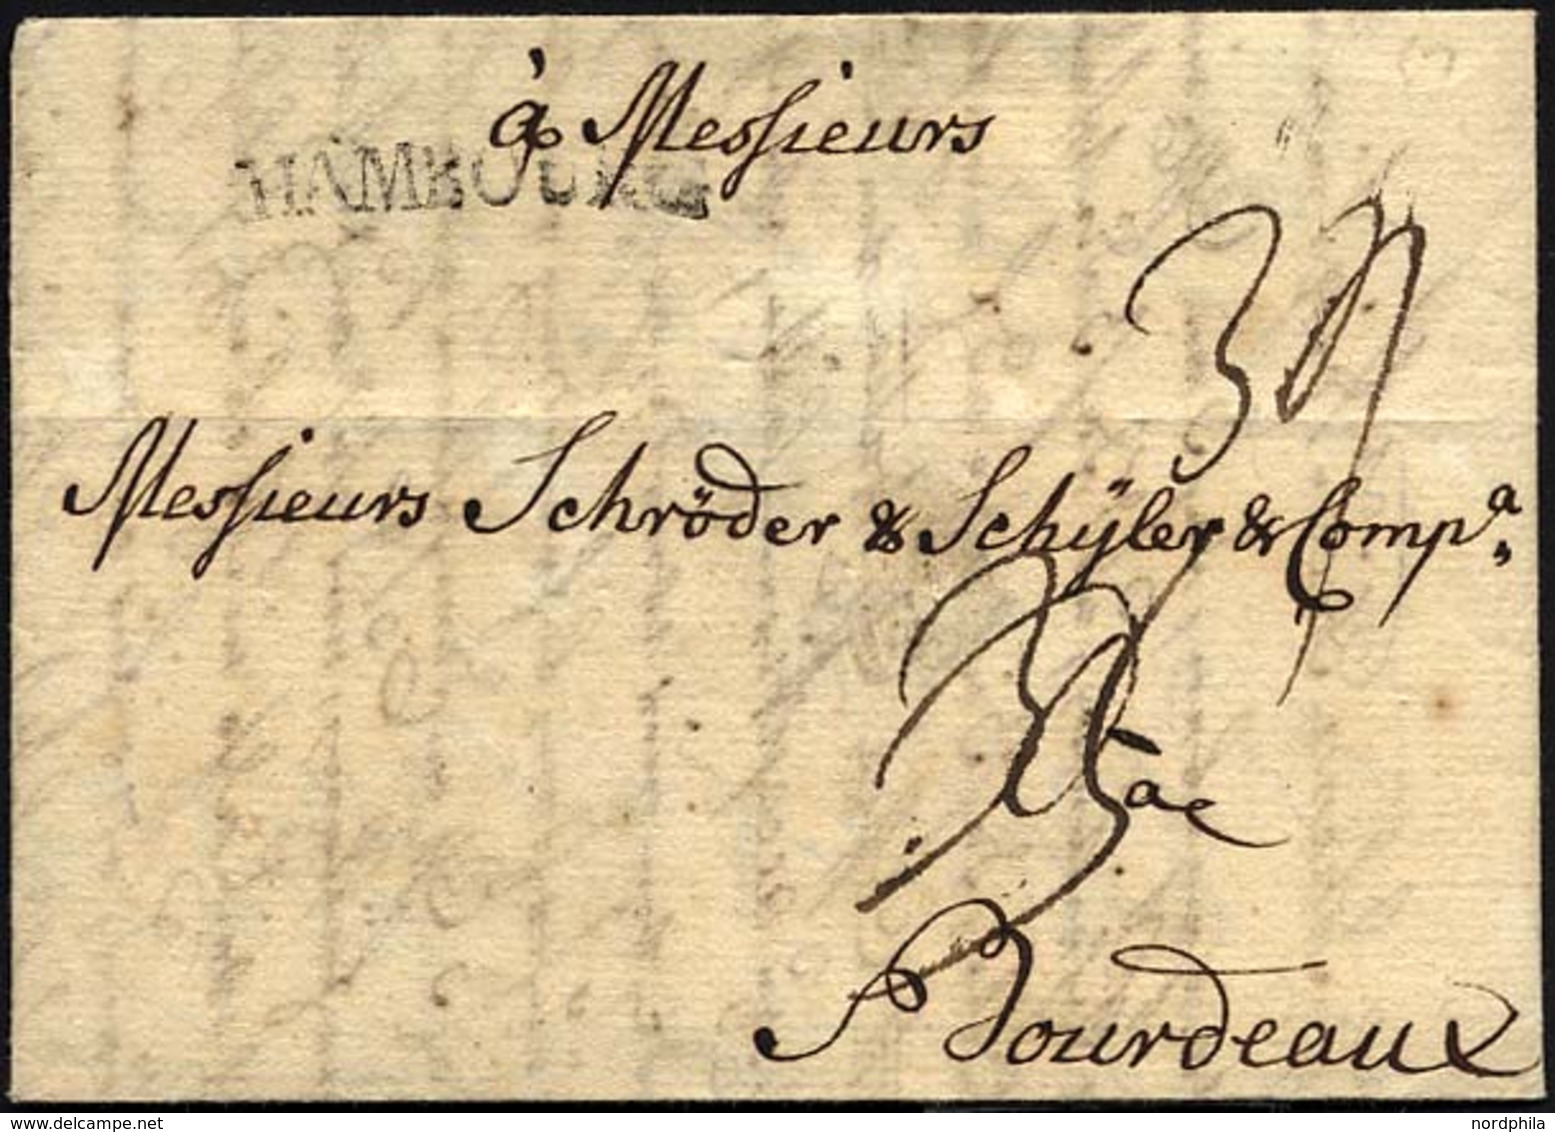 à Messieurs
HAMBOURG
Messieurs Schröder & Schÿler & Comp.ª
Bourdeaux
delcampe.net
nordphila